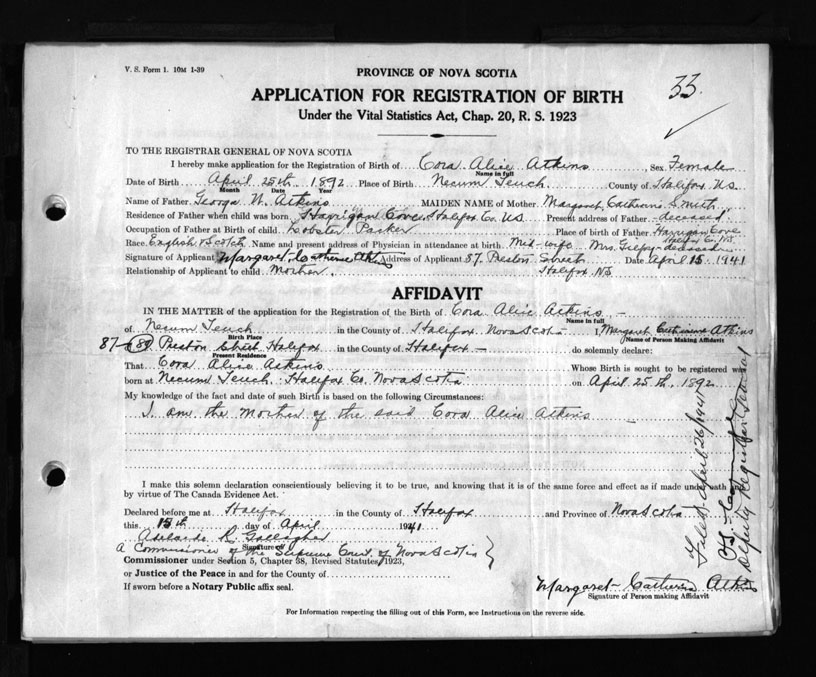 V. S. Form 1. 10M 1-39
33.
PROVINCE OF NOVA SCOTIA
APPLICATION FOR REGISTRATION OF BIRTH
Under the Vital Statistics Act, Chap. 20, R. S. 1923
TO THE REGISTRAR GENERAL OF NOVA SCOTIA
I hereby make application for the Registration of Birth of Cora Alice Atkins Sex Female
Name in full
Date of Birth April 25th 1892 Place of Birth Necum Teuch County of Halifax N.S.
Month Date Year
Name of Father George W. Atkins MAIDEN NAME of Mother Margaret Catherine Smith
Residence of Father when child was born Harrigan Cove Halifax Co. N.S Present address of Father deceased
Occupation of Father at Birth of child Lobster Packer Place of birth of Father Harrigan Cove
Halifax Co. N.S.
Race English & Scotch Name and present address of Physician in attendance at birth Mid-wife Mrs. deceased
Signature of Applicant Margaret Catherine Atkins Address of Applicant 87 Preston Street Date April 15 1941
Relationship of Applicant to child Mother Halifax NS
AFFIDAVIT
IN THE MATTER of the application for the Registration of the Birth of Cora Alice Atkins
Name in full
of Necum Teuch in the County of Halifax Nova Scotia I, Margaret Catherine Atkins
Birth Place Name of Person Making Affidavit
87 Preston Street Halifax in the County of Halifax do solemnly declare:
Present Residence
That Cora Alice Atkins Whose Birth is sought to be registered was
born at Necum Teuch Halifax Co. Nova Scotia on April 25th, 1892
My knowledge of the fact and date of such Birth is based on the following Circumstances:
I am the Mother of the said Cora Alice Atkins
I make this solemn declaration conscientiously believing it to be true, and knowing that it is of the same force and effect as if made under oath and
by virtue of The Canada Evidence Act.
Declared before me at Halifax in the County of Halifax and Province of Nova Scotia
this 15th day of April 1941
Adelaide R. Gallagher
Signature of
A Commissioner of the Supreme Court of Nova Scotia
Commissioner under Section 5, Chapter 38, Revised Statutes 1923,
or Justice of the Peace in and for the County of
If sworn before a Notary Public affix seal.
Margaret Catherine Atkins
Signature of Person making Affidavit
For Information respecting the filling out of this Form, see Instructions on the reverse side.
Filed April 26/1941
Deputy Registrar General